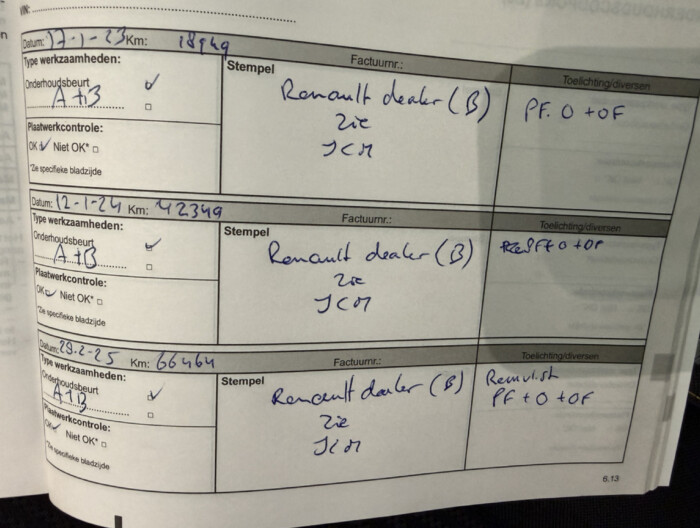 VIN:
Datum: 17-1-23 Km: 18949
Type werkzaamheden:
Onderhoudsbeurt
A+B
Plaatwerkcontrole:
OK Niet OK*
*Zie specifieke bladzijde
Stempel
Factuurnr.:
Renault dealer (B)
Zie
ICM
Toelichting/diversen
PF. O + OF
Datum: 12-1-24 Km: 42349
Type werkzaamheden:
Onderhoudsbeurt
A+B
Plaatwerkcontrole:
OK Niet OK*
*Zie specifieke bladzijde
Stempel
Factuurnr.:
Renault dealer (B)
Zie
ICM
Toelichting/diversen
O + OF
Datum: 29.2-25 Km: 66464
Type werkzaamheden:
Onderhoudsbeurt
A+B
Plaatwerkcontrole:
OK Niet OK*
*Zie specifieke bladzijde
Stempel
Factuurnr.:
Renault dealer (B)
Zie
ICM
Toelichting/diversen
Remvlst
PF + O + OF
6.13